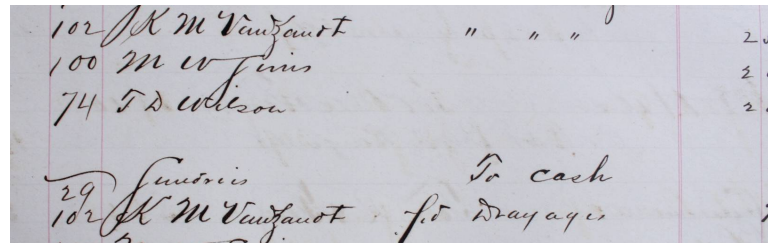 102 K M Vanzandt " " " 2
100 M W Sims 2
74 T D Wilson 2
29 Sundries To cash
102 K M Vanzandt pd Drayages